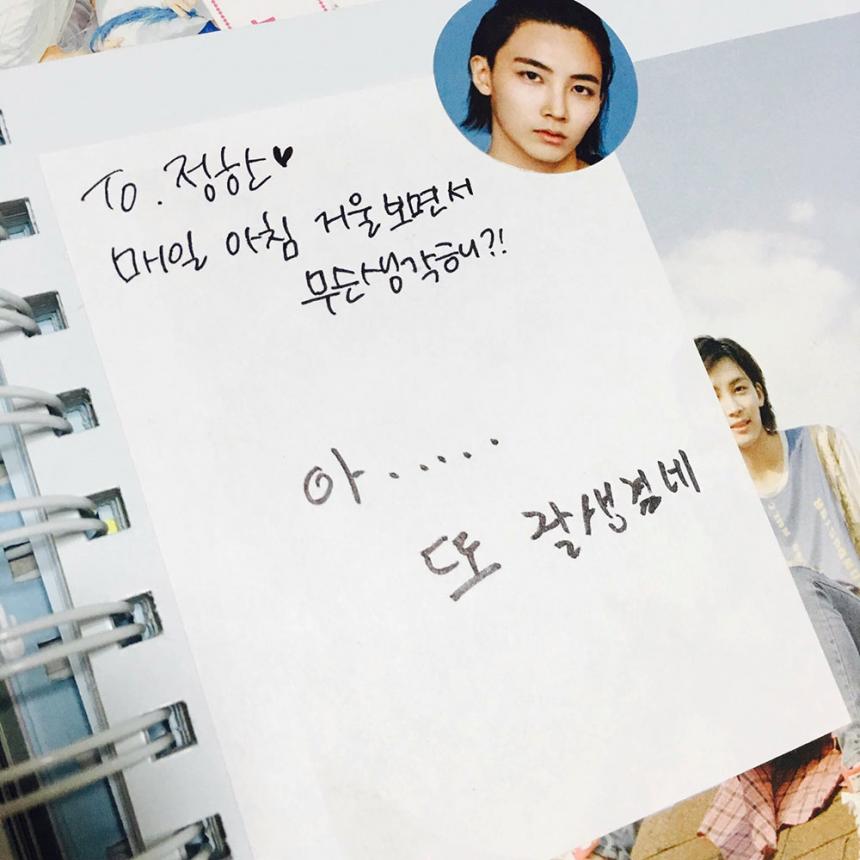 To. 정한♥
매일 아침 거울보면서
무슨생각하니?!
아.....
또 잘생겼네